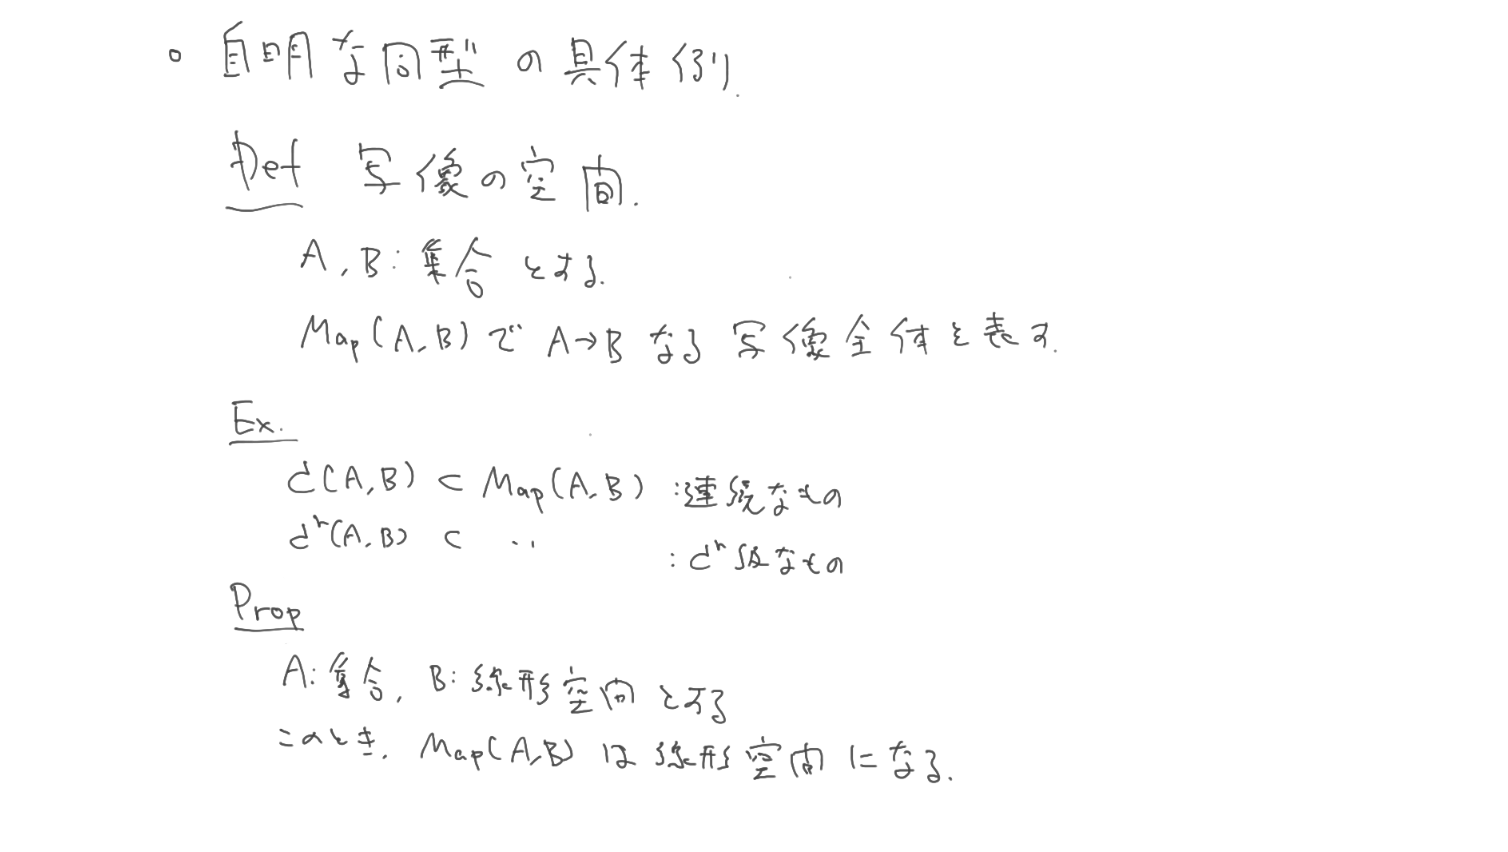 。自明な同型の具体例.
Def 写像の空間.
A, B: 集合とする.
Map(A, B)で A→B なる 写像全体を表す.
Ex.
C(A, B) ⊂ Map(A, B) : 連続なもの
C^r(A, B) ⊂ 〃 : C^r級なもの
Prop
A: 集合, B: 線形空間とする
このとき, Map(A, B) は線形空間になる.